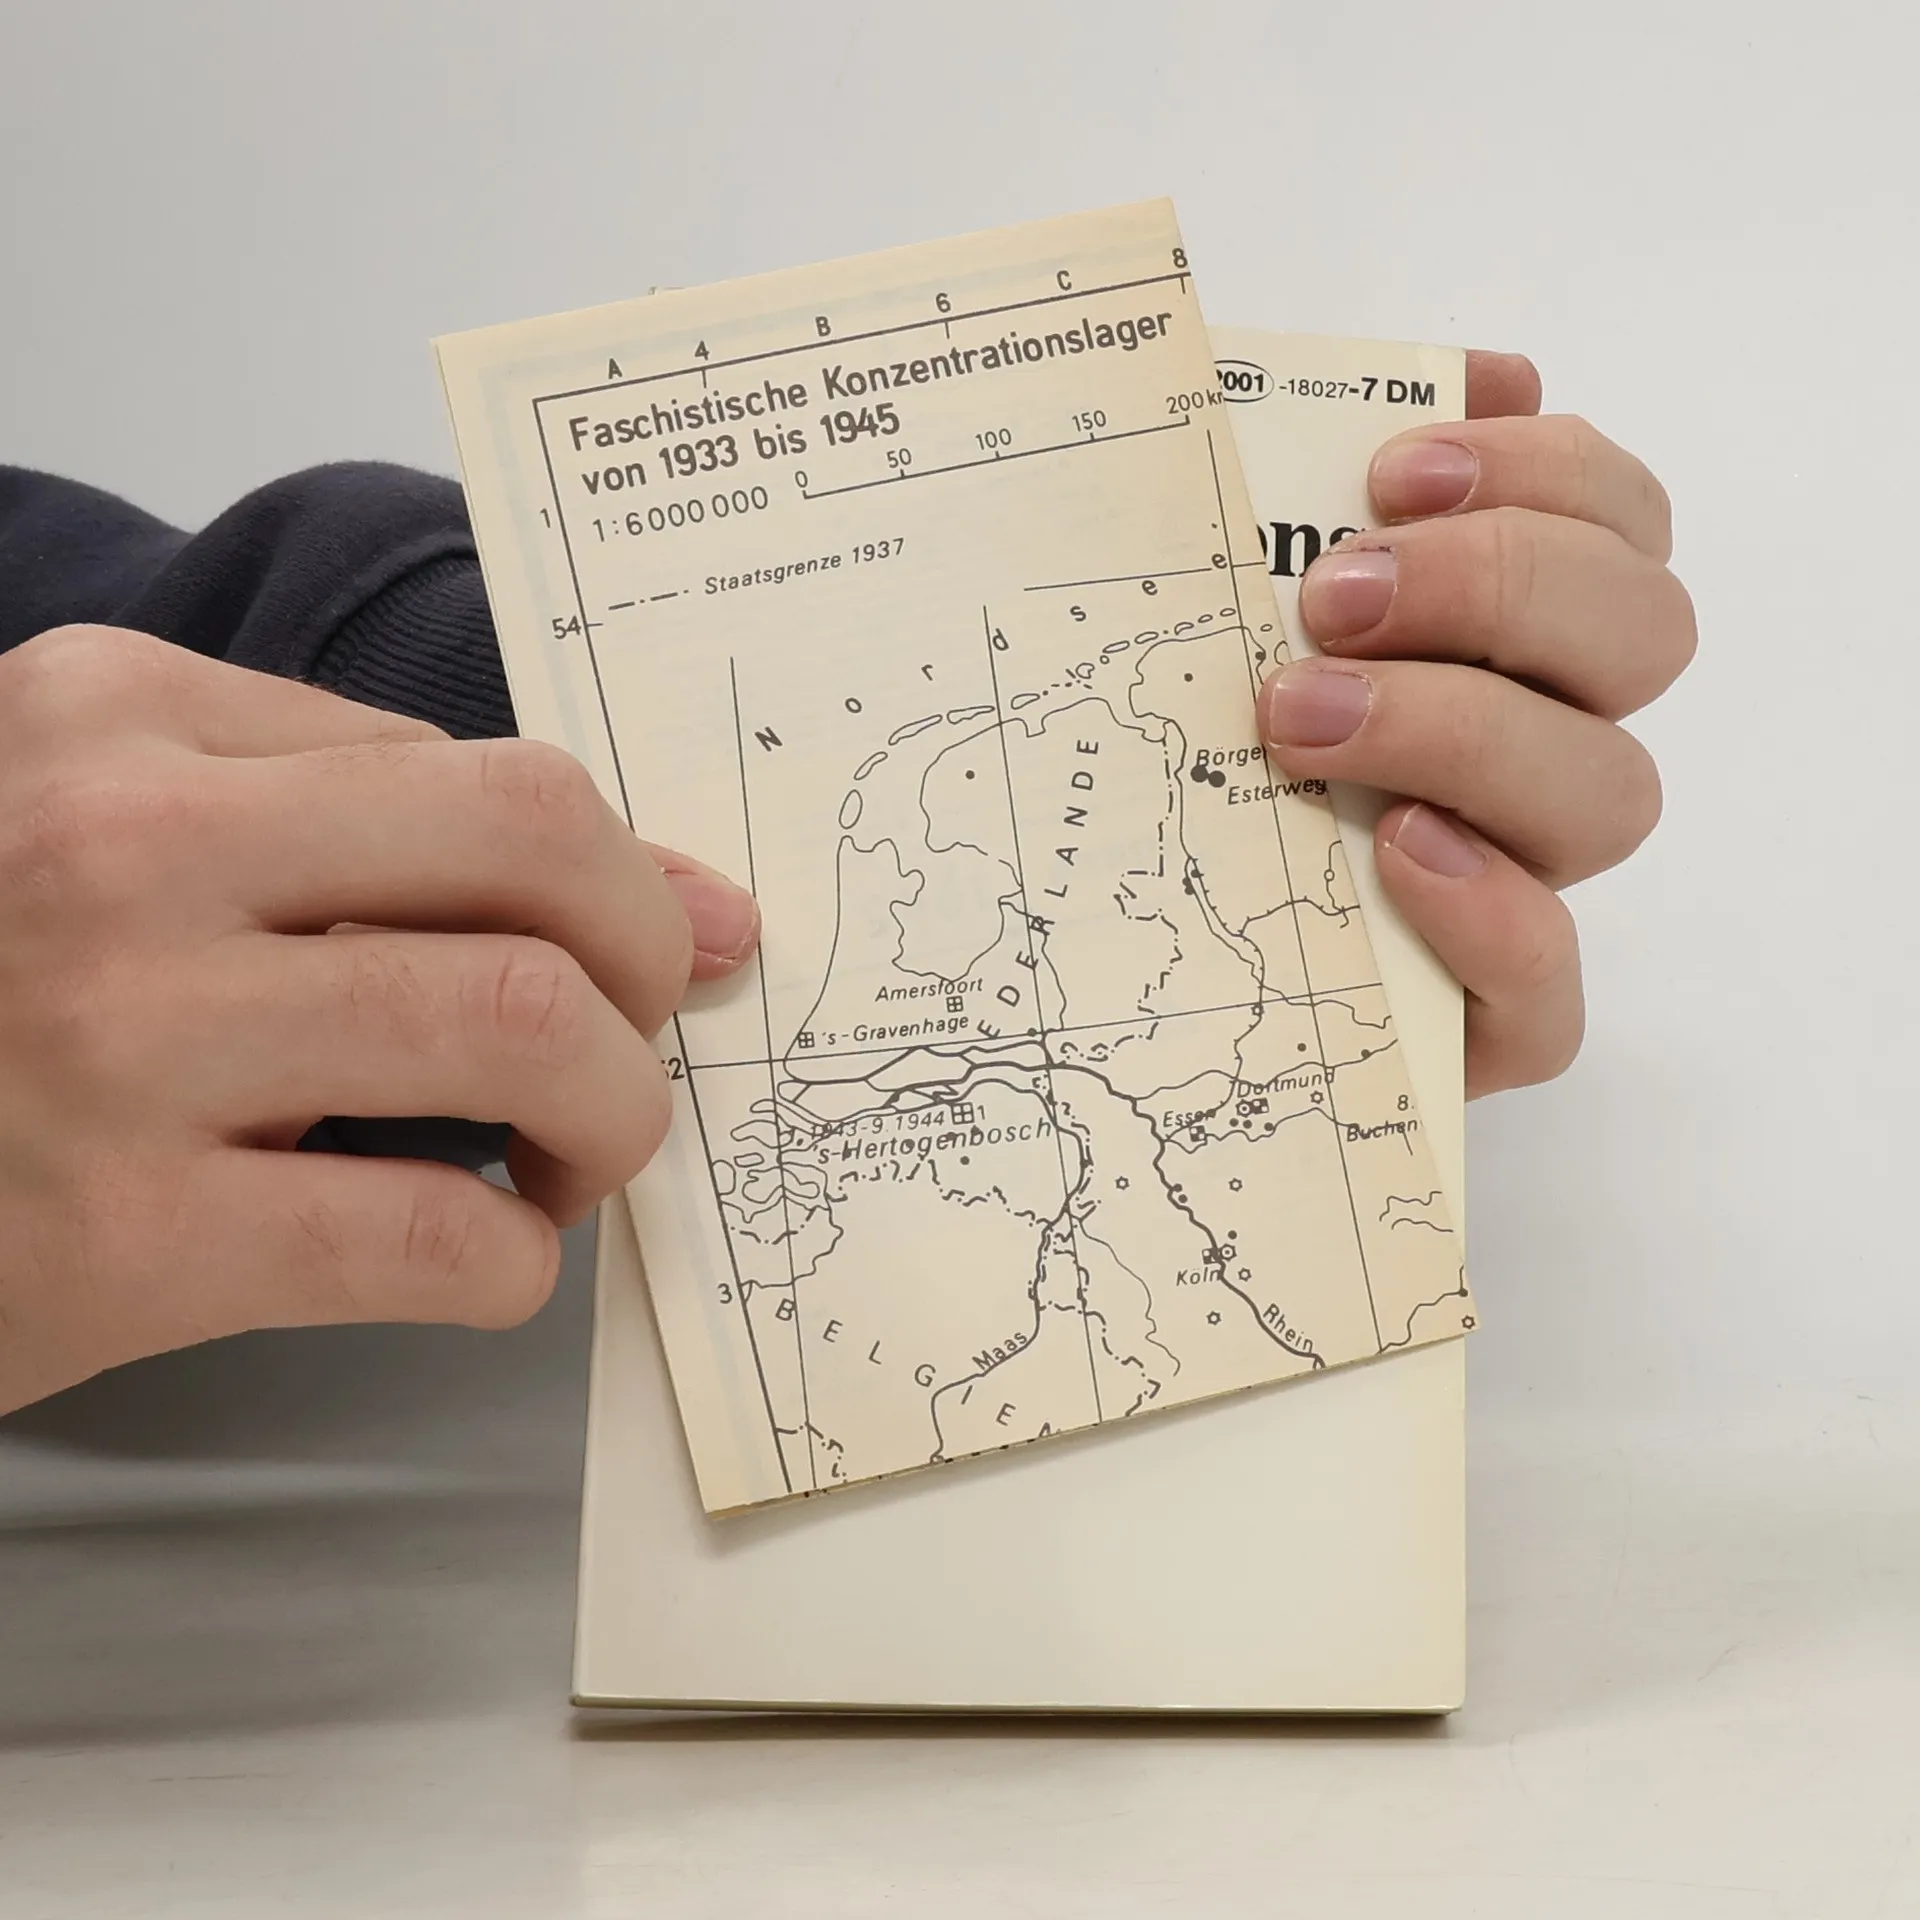 A 4 B 6 C 8
Faschistische Konzentrationslager
von 1933 bis 1945
1:6000000 0 50 100 150 200
2001 -18027-7 DM
1
Staatsgrenze 1937
54
Nordsee
NIEDERLANDE
Amersfoort
's-Gravenhage
1943-9.1944 1
's-Hertogenbosch
Essen
Dortmund
8.
Buchen
Köln
Rhein
3
BELGIEN
Maas